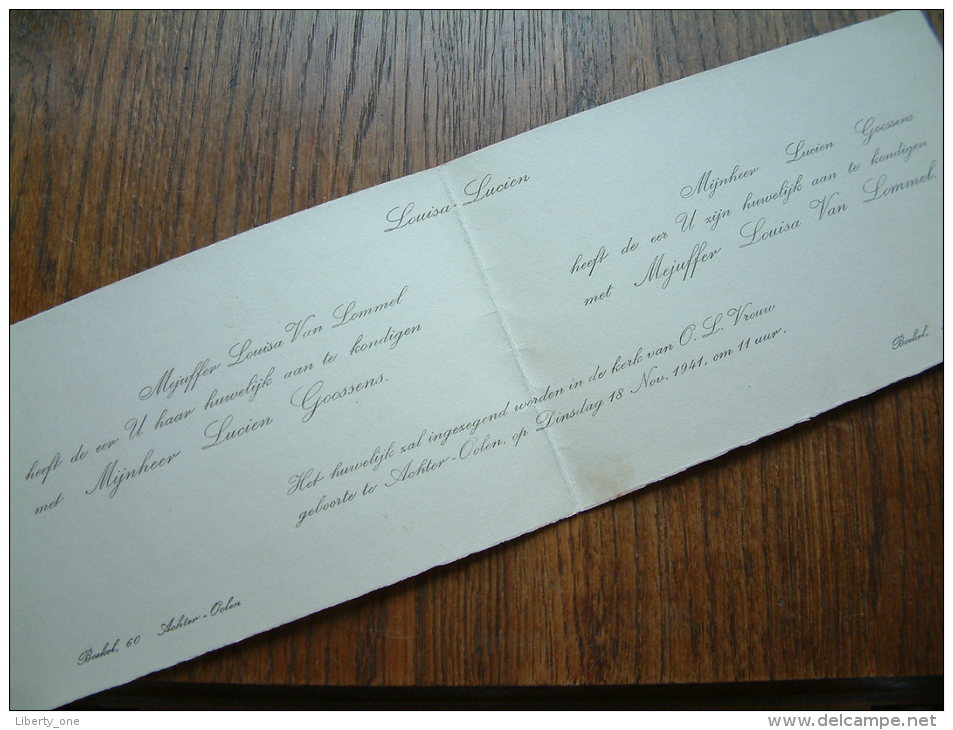 Louisa-Lucien
Mejuffer Louisa Van Lommel
heeft de eer U haar huwelijk aan te kondigen
met Mijnheer Lucien Goossens.
Mijnheer Lucien Goossens
heeft de eer U zijn huwelijk aan te kondigen
met Mejuffer Louisa Van Lommel.
Het huwelijk zal ingezegend worden in de kerk van O. L. Vrouw
geboorte te Achter-Oolen, op Dinsdag 18 Nov. 1941, om 11 uur.
Boekel, 60 Achter-Oolen
Boekel,
Liberty_one
www.delcampe.net